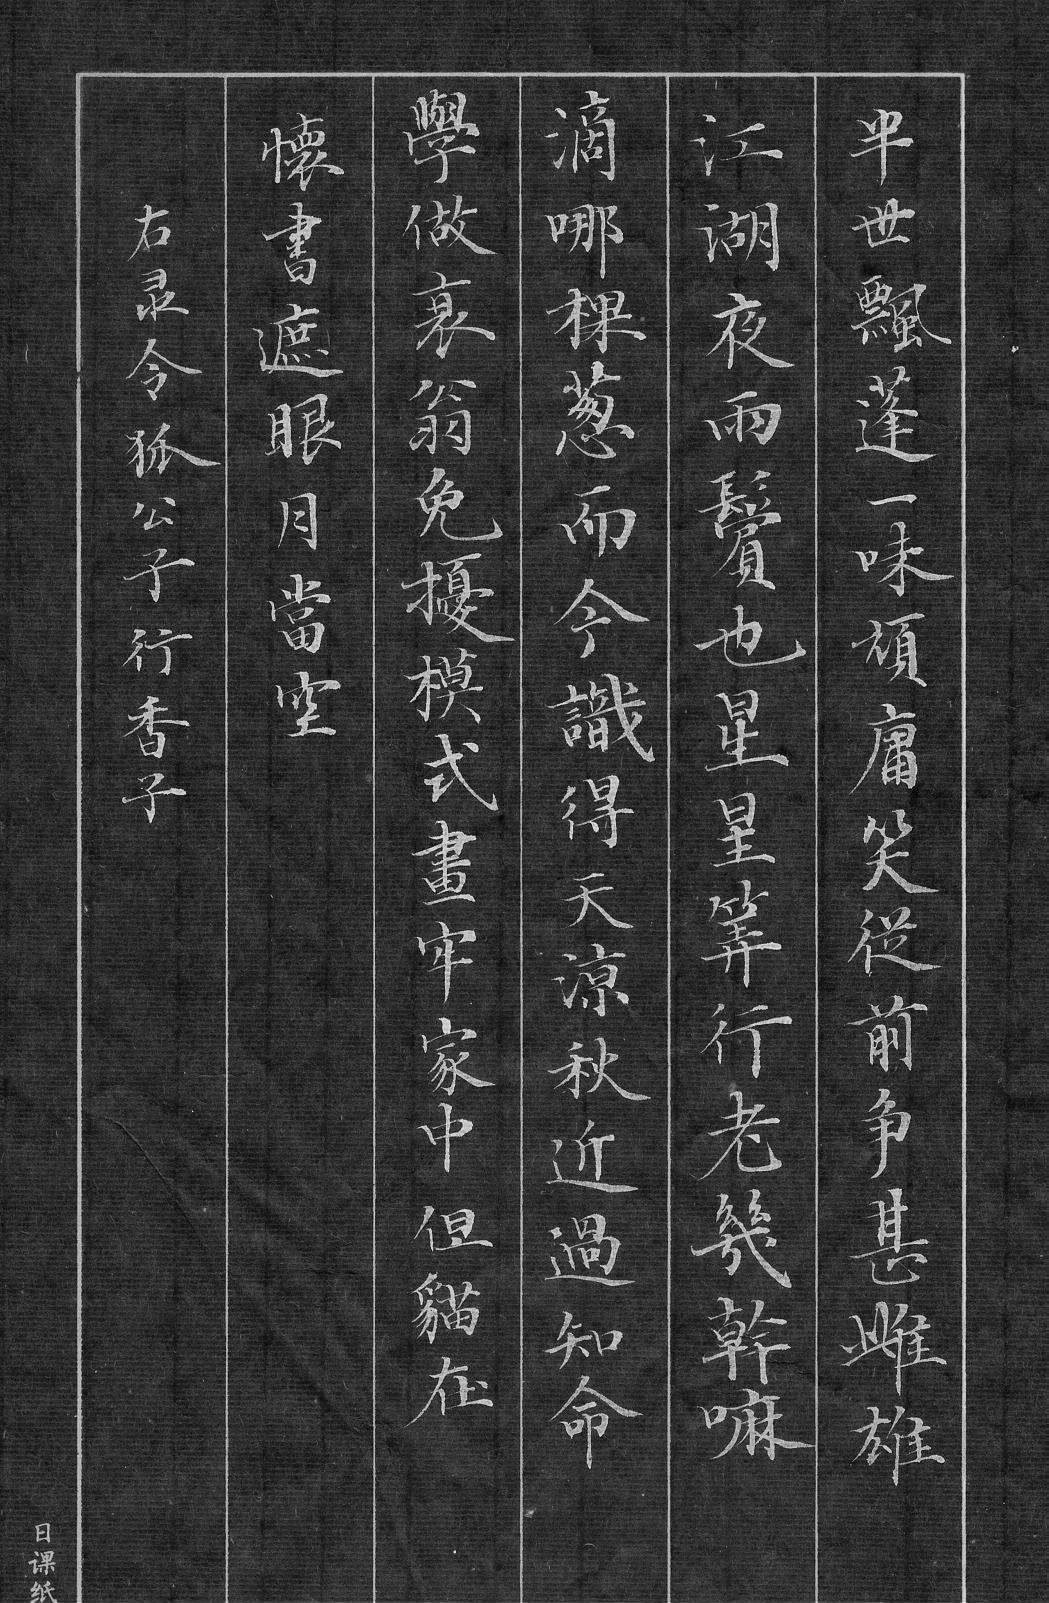 半世飄蓬一味頑庸笑從前争甚雌雄
江湖夜雨鬢也星星算行老幾幹嘛
滴哪棵葱而今識得天涼秋近過知命
學做衰翁免擾模式畫牢家中但貓在
懷書遮眼月當空
右录令狐公子行香子
日课纸